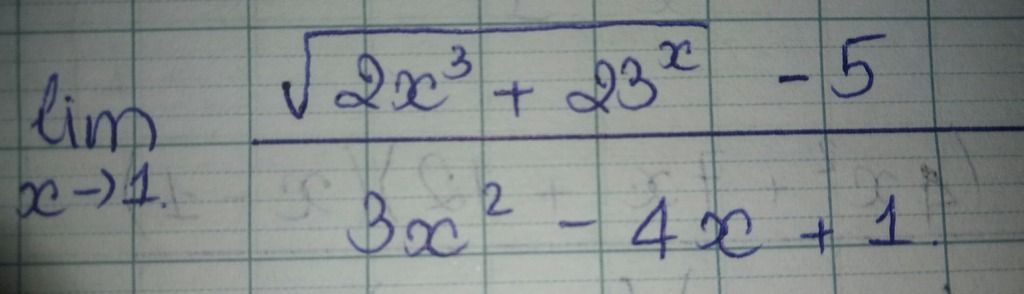 lim x→1 (√(2x³ + 23ˣ) - 5) / (3x² - 4x + 1)